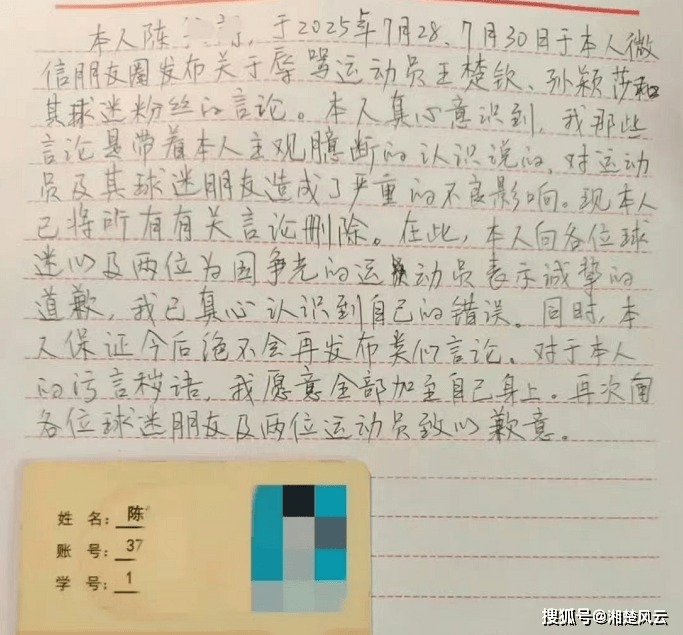 本人陈 ,于2025年7月28、7月30日于本人微
信朋友圈发布关于辱骂运动员王楚钦、孙颖莎和
其球迷粉丝的言论。本人真心意识到,我那些
言论是带着本人主观臆断的认识说的,对运动
员及其球迷朋友造成了严重的不良影响。现本人
已将所有有关言论删除。在此,本人向各位球
迷以及两位为国争光的运动员表示诚挚的
道歉,我已真心认识到自己的错误。同时,本
人保证今后绝不会再发布类似言论。对于本人
的污言秽语,我愿意全部加至自己身上。再次向
各位球迷朋友及两位运动员致以歉意。
姓 名: 陈
账 号: 37
学 号: 1
搜狐号@湘楚风云